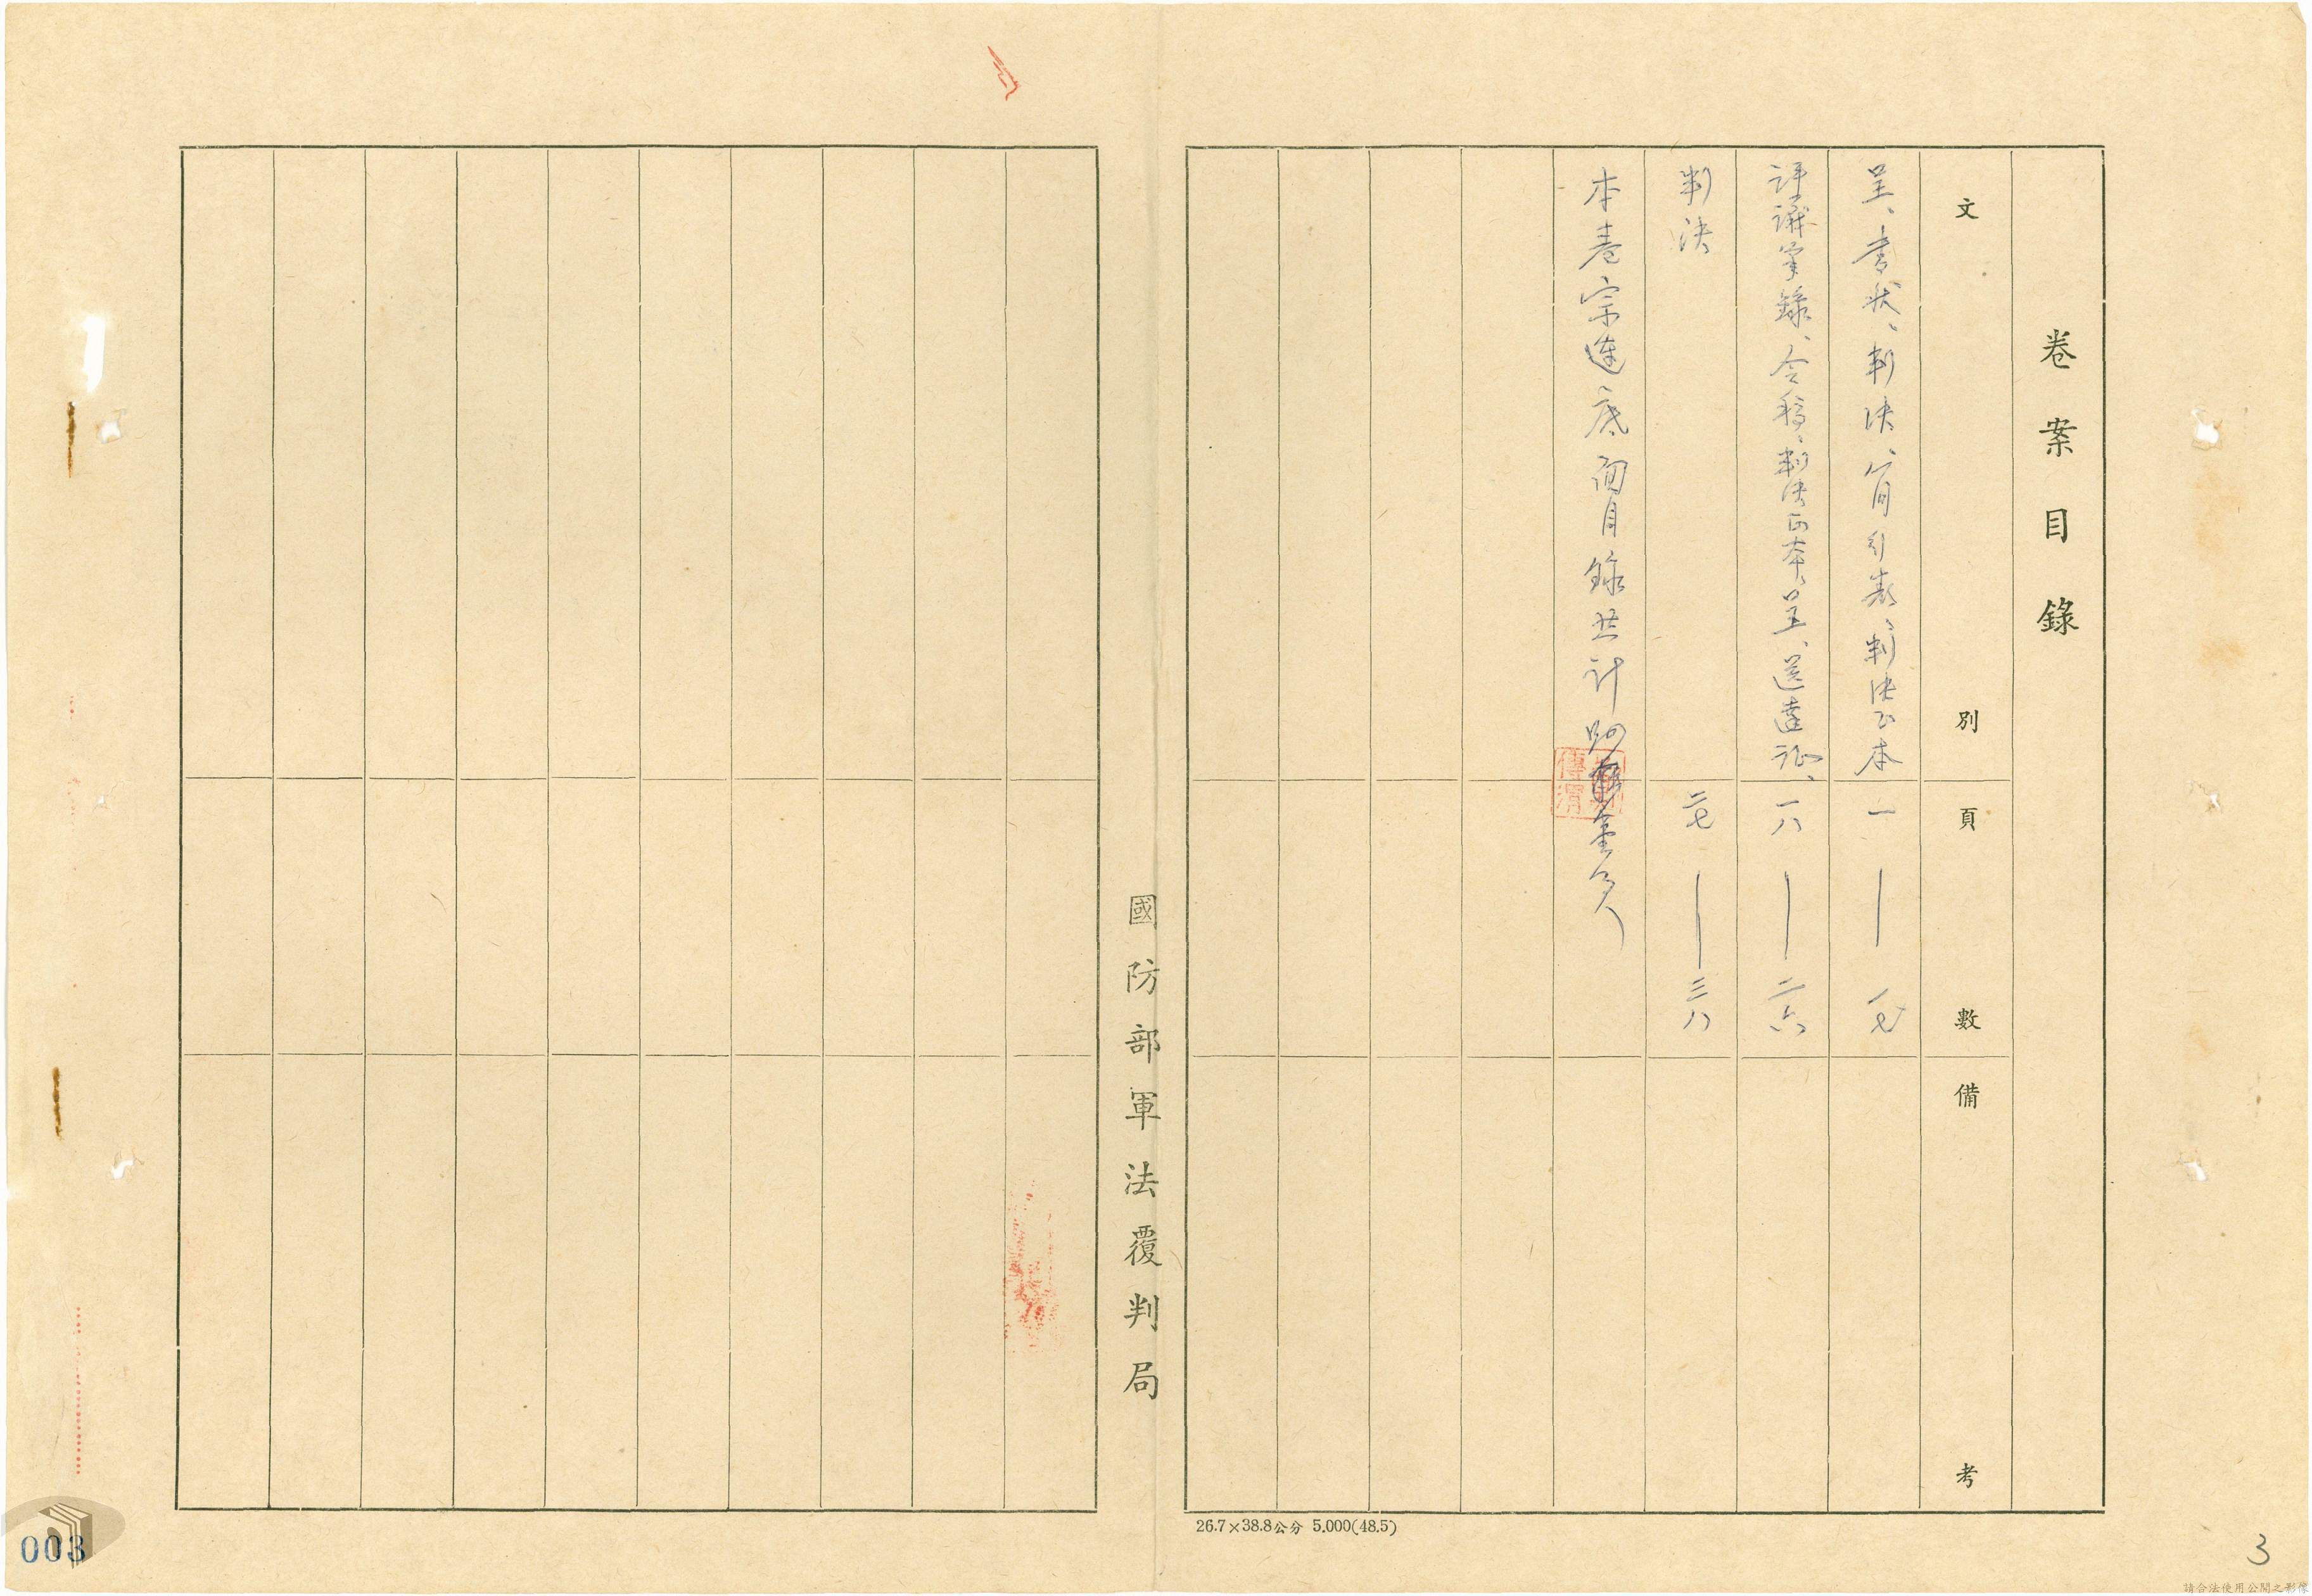 卷案目錄
文別 頁數 備考
呈、書狀、判決、簡引表、判決正本 一—一七
評議筆錄、令稿、判決正本、呈、送達証、 一八—二六
判決 二七—三八
本卷宗連底面目錄共計
國防部軍法覆判局
26.7×38.8公分 5.000(48.5)
003
3
請合法使用公開之影像